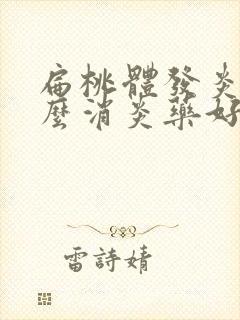 扁桃體發炎
麼消炎藥好
雷詩婧